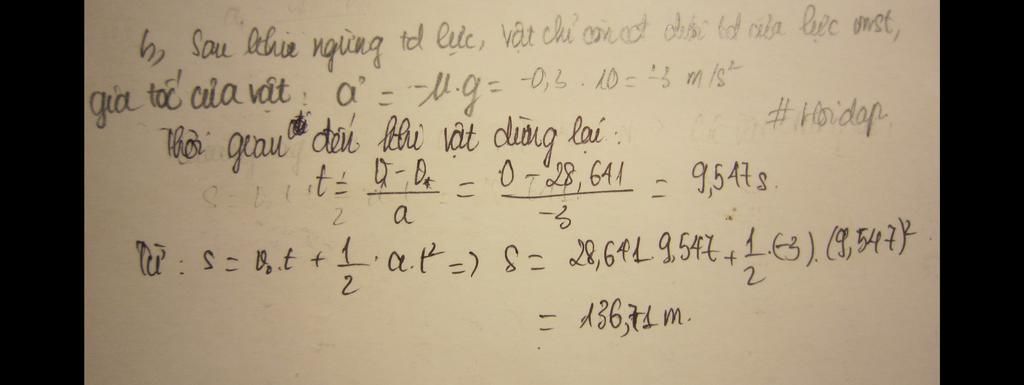 b, Sau khi ngừng td lực, vật chỉ còn dưới td của lực mst,
gia tốc của vật: a' = -μ.g = -0,3 . 10 = -3 m/s²
#Hoidap
Thời gian đến khi vật dừng lại:
t = (v - v₀)/a = (0 - 28,641)/-3 = 9,547s.
Từ: s = v₀.t + 1/2 . a.t² => S = 28,641.9,547 + 1/2.(-3).(9,547)²
= 136,71 m.